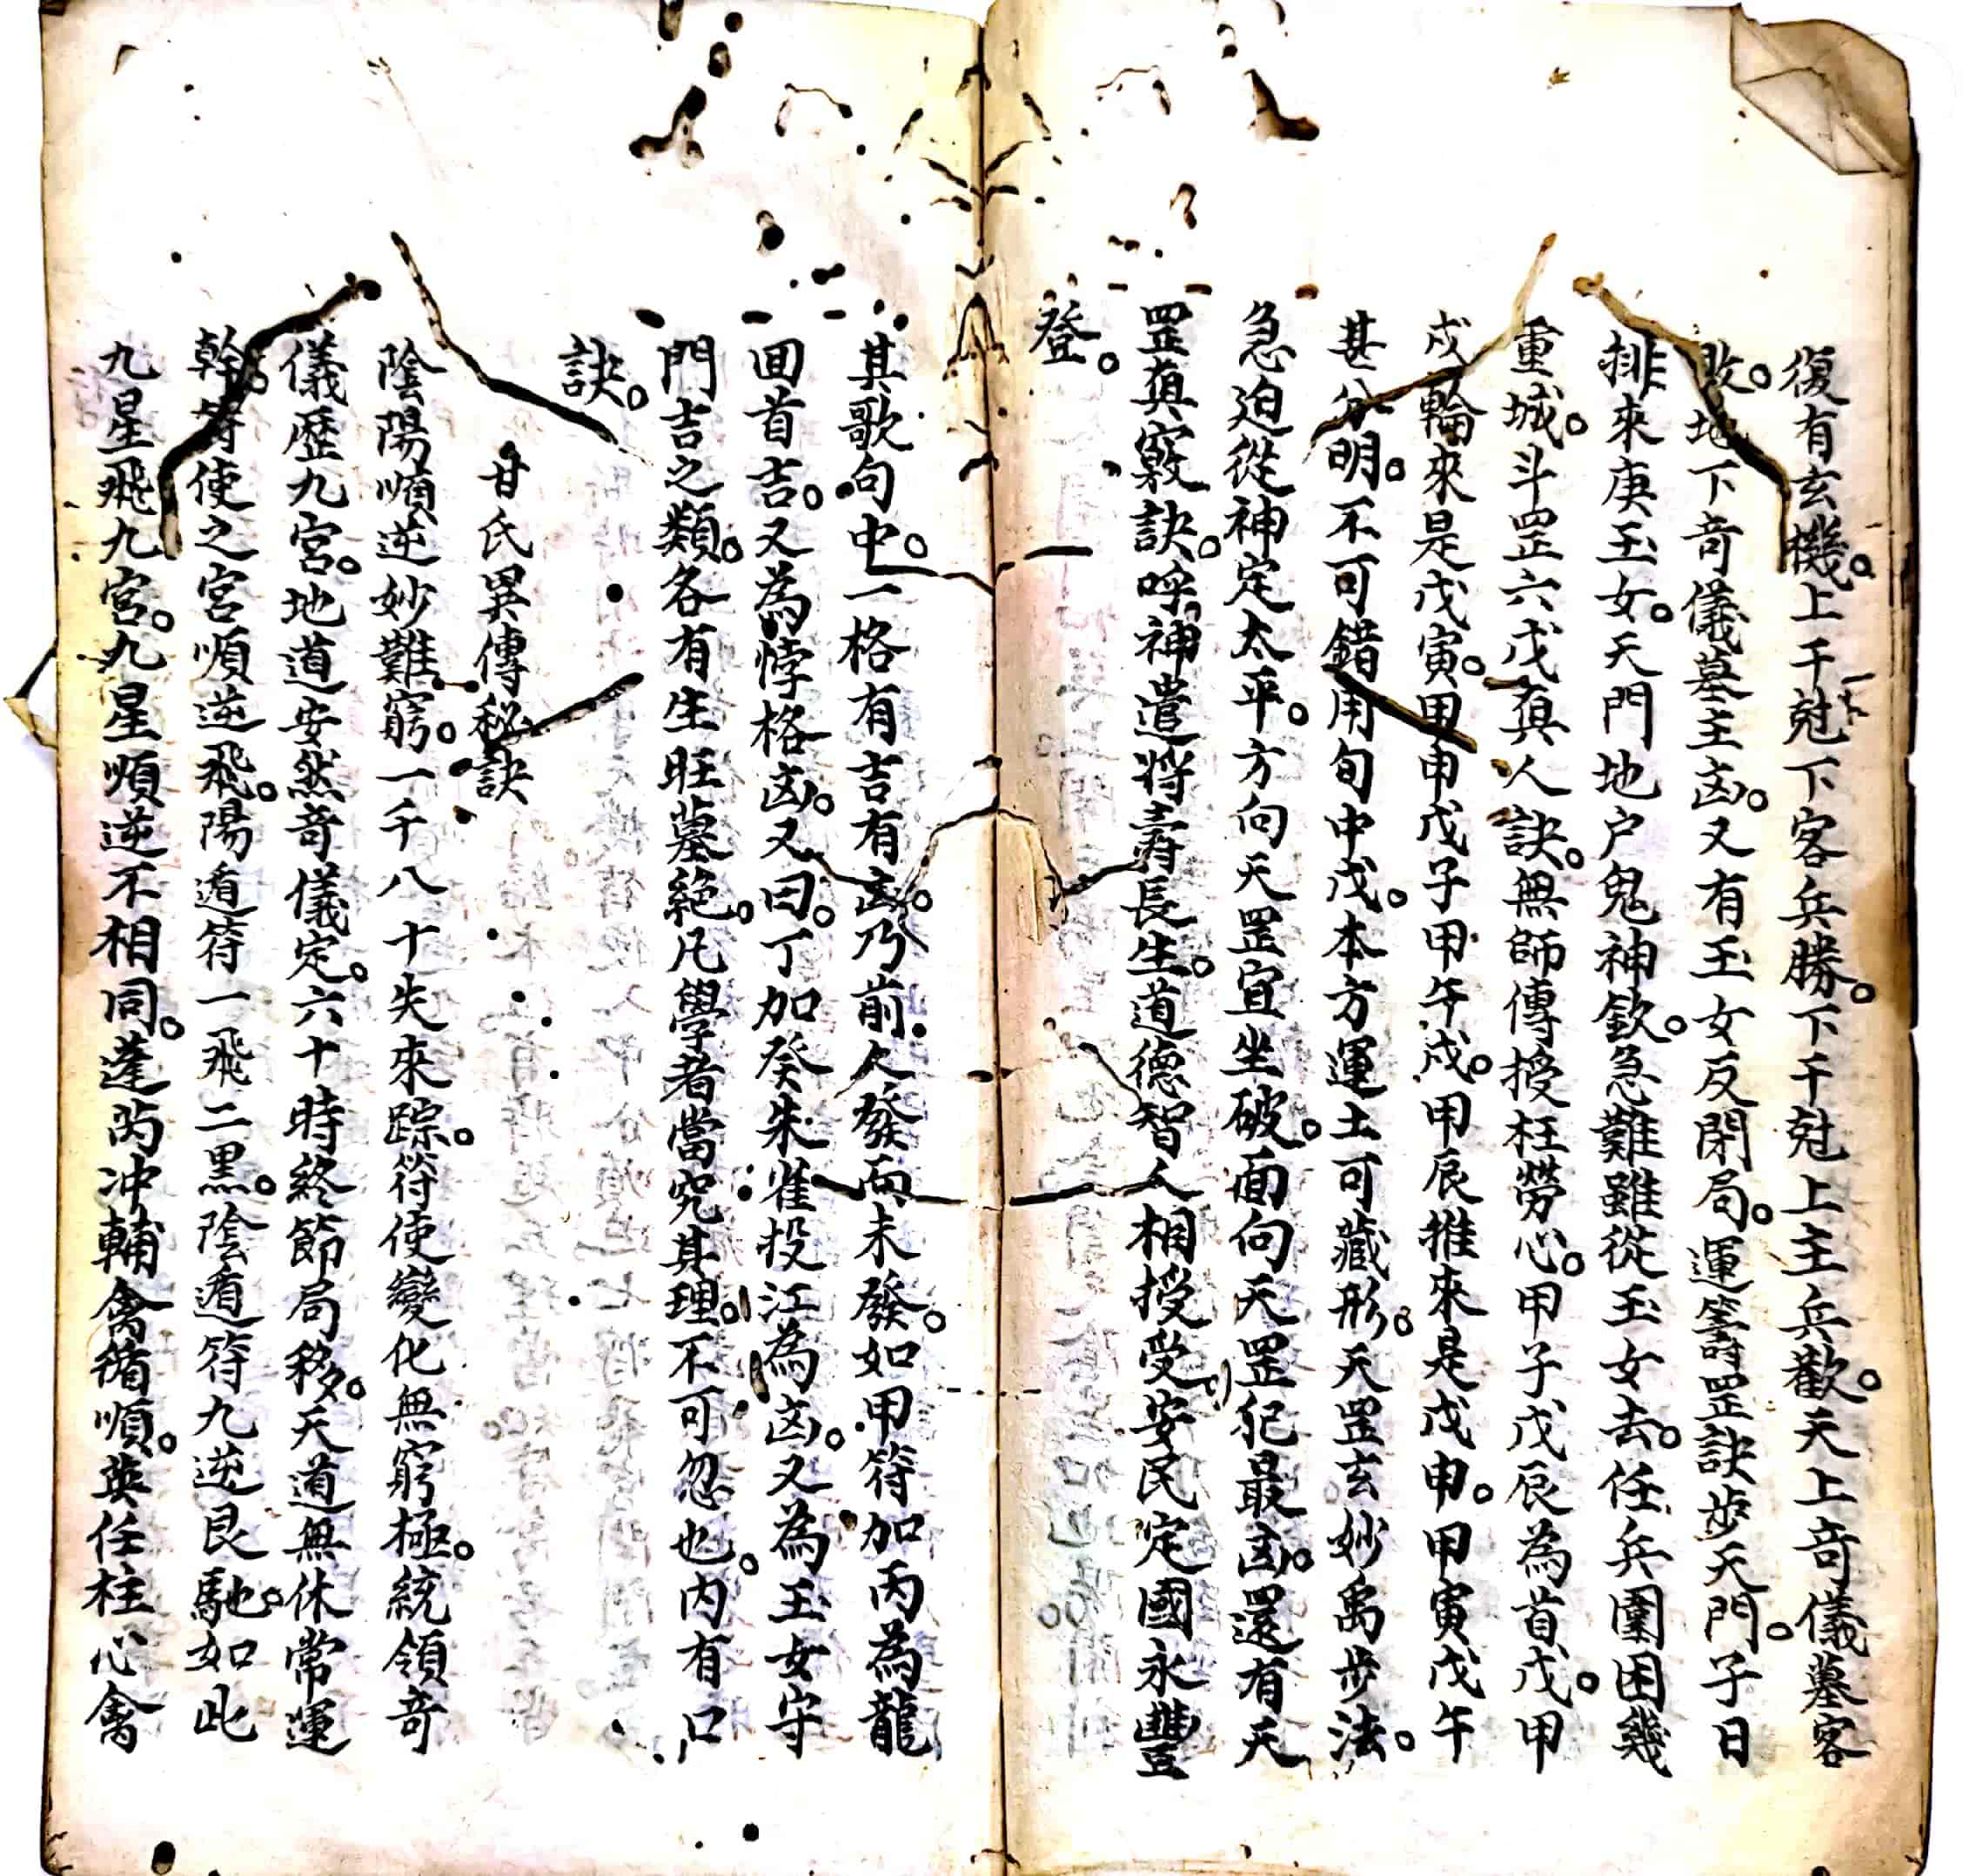 復有玄機。上干尅下客兵勝。下干尅上主兵歡。天上竒儀墓客
敗。地下竒儀墓主凶。又有玉女反閉局。運籌罡訣步天門。子日
排來庚玉女。天門地户鬼神欽。急難雖從玉女去。任兵圍困幾
重城。斗罡六戊真人訣。無師傳授枉勞心。甲子戊辰為首戊。甲
戌輪來是戊寅。甲申戊子甲午戌。甲辰推來是戊申。甲寅戊午
甚分明。不可錯用旬中戊。本方運土可藏形。天罡玄妙禹步法。
急迫從神定太平。方向天罡宜坐破。面向天罡犯最凶。還有天
罡真竅訣。呼神遣將壽長生。道德智人相授受。安民定國永豐
登。
其歌句中。一格有吉有凶。乃前人發而未發。如甲符加丙為龍
回首吉。又為悖格凶。又曰。丁加癸朱雀投江為凶。又為玉女守
門吉之類。各有生旺墓絕。凡學者當究其理。不可忽也。内有口
訣。
甘氏異傳秘訣
陰陽順逆妙難窮。一千八十失來踪。符使變化無窮極。統領竒
儀歷九宮。地道安然竒儀定。六十時終節局移。天道無休常運
幹。符使之宮順逆飛。陽遁符一飛二黑。陰遁符九逆艮馳。如此
九星飛九宮。九星順逆不相同。蓬芮冲輔禽循順。英任柱心禽